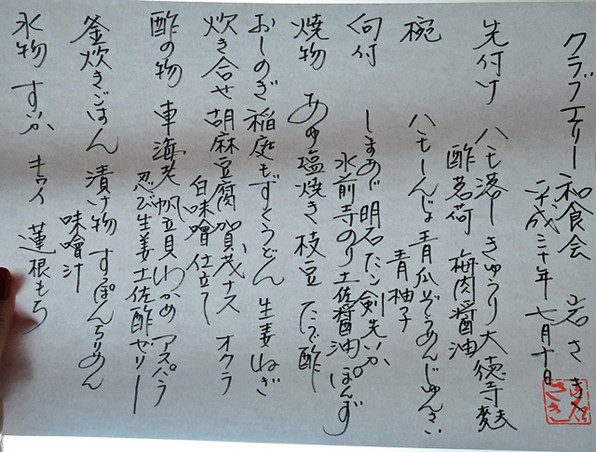 クラブエリー 和食会 岩さき
平成三十年 七月十日
先付け 八モ落し きゅうり 大徳寺麩
酢茗荷 梅肉醤油
椀 ハモしんじょ 青瓜ぞうめん じゅんさい
青柚子
向付 しまあじ 明石たこ 剣先いか
水前寺のり 土佐醤油 ぽんず
焼物 あゆ塩焼き 枝豆 たで酢
おしのぎ 稲庭もずくうどん 生姜 ねぎ
炊き合せ 胡麻豆腐 賀茂ナス オクラ
白味噌仕立て
酢の物 車海老 帆立貝 わかめ アスパラ
忍び生姜 土佐酢ゼリー
釜炊きごはん 漬け物 すっぽんちりめん
味噌汁
水物 すいか キウイ 蓮根もち